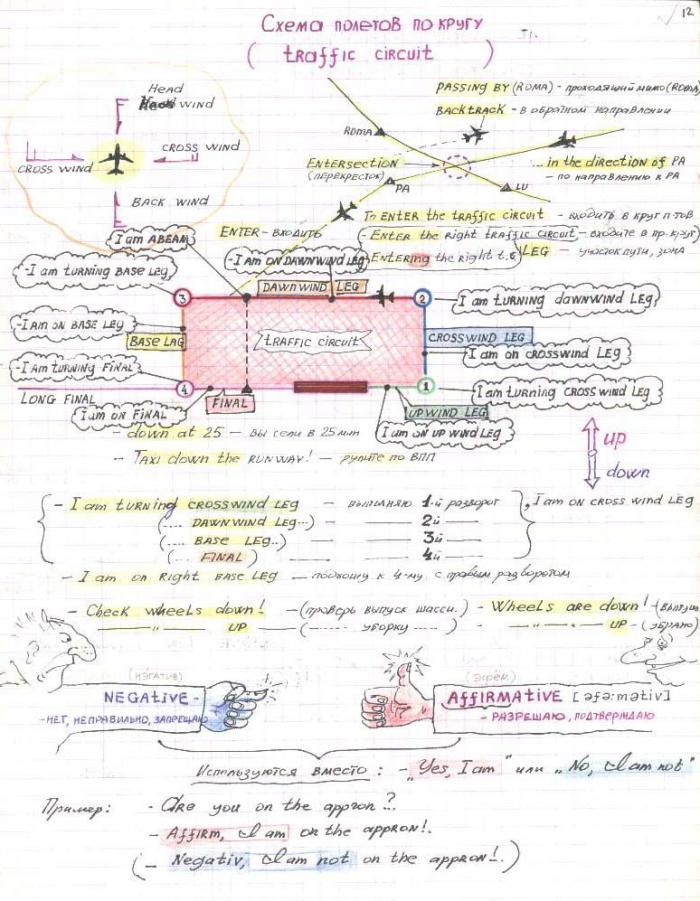 12
Схема полетов по кругу
( traffic circuit )
Head
wind
CROSS WIND
CROSS WIND
BACK WIND
PASSING BY (ROMA) - проходящий мимо (ROMA)
BACKTRACK - в обратном направлении
ROMA
ENTERSECTION
(ПЕРЕКРЕСТОК)
PA
LU
... in the direction of PA
- по направлению к PA
ENTER - ВХОДИТЬ
To ENTER the traffic circuit - входить в круг п-тов
- Enter the right traffic circuit - входите в пр. круг)
Entering the right t.c
LEG - участок пути, зона
I am ABEAM
- I am ON DAWNWIND LEG
- I am turning BASE LEG
DAWNWIND LEG
3
2
I am turning dawnwind Leg
- I AM ON BASE LEG
BASE LAG
TRAFFIC CIRCUIT
CROSSWIND LEG
I am on CROSSWIND LEG
- I am TURNING FINAL
LONG FINAL
4
1
I am turning CROSSWIND LEG
I am ON FINAL
FINAL
UPWIND LEG
I am ON UP WIND LEG
- down at 25 - вы сели в 25 мин
- TAXI down the RUNWAY! - рулите по ВПП
UP
down
- I am turning CROSSWIND LEG - выполняю 1-й разворот , I am ON CROSS WIND LEG
(.... DAWNWIND LEG...) — 2й —
(... BASE LEG..) — 3й —
(... FINAL) — 4й —
- I am on Right BASE LEG — подхожу к 4-му с правым разворотом
- Check wheels down! - (проверь выпуск шасси.) - Wheels are down! -
— " — UP - (..... уборку ....) — " — UP - (убрано)
(НЭГАТИВ)
NEGATIVE -
- НЕТ, НЕПРАВИЛЬНО, ЗАПРЕЩАЮ
AFFIRMATIVE [əfə:mətiv]
- РАЗРЕШАЮ, ПОДТВЕРЖДАЮ
Используются вместо : - "Yes, I am" или "No, I am not"
Пример: - Are you on the appron?
- Affirm, I am on the appron!.
(- Negativ, I am not on the appron!.)